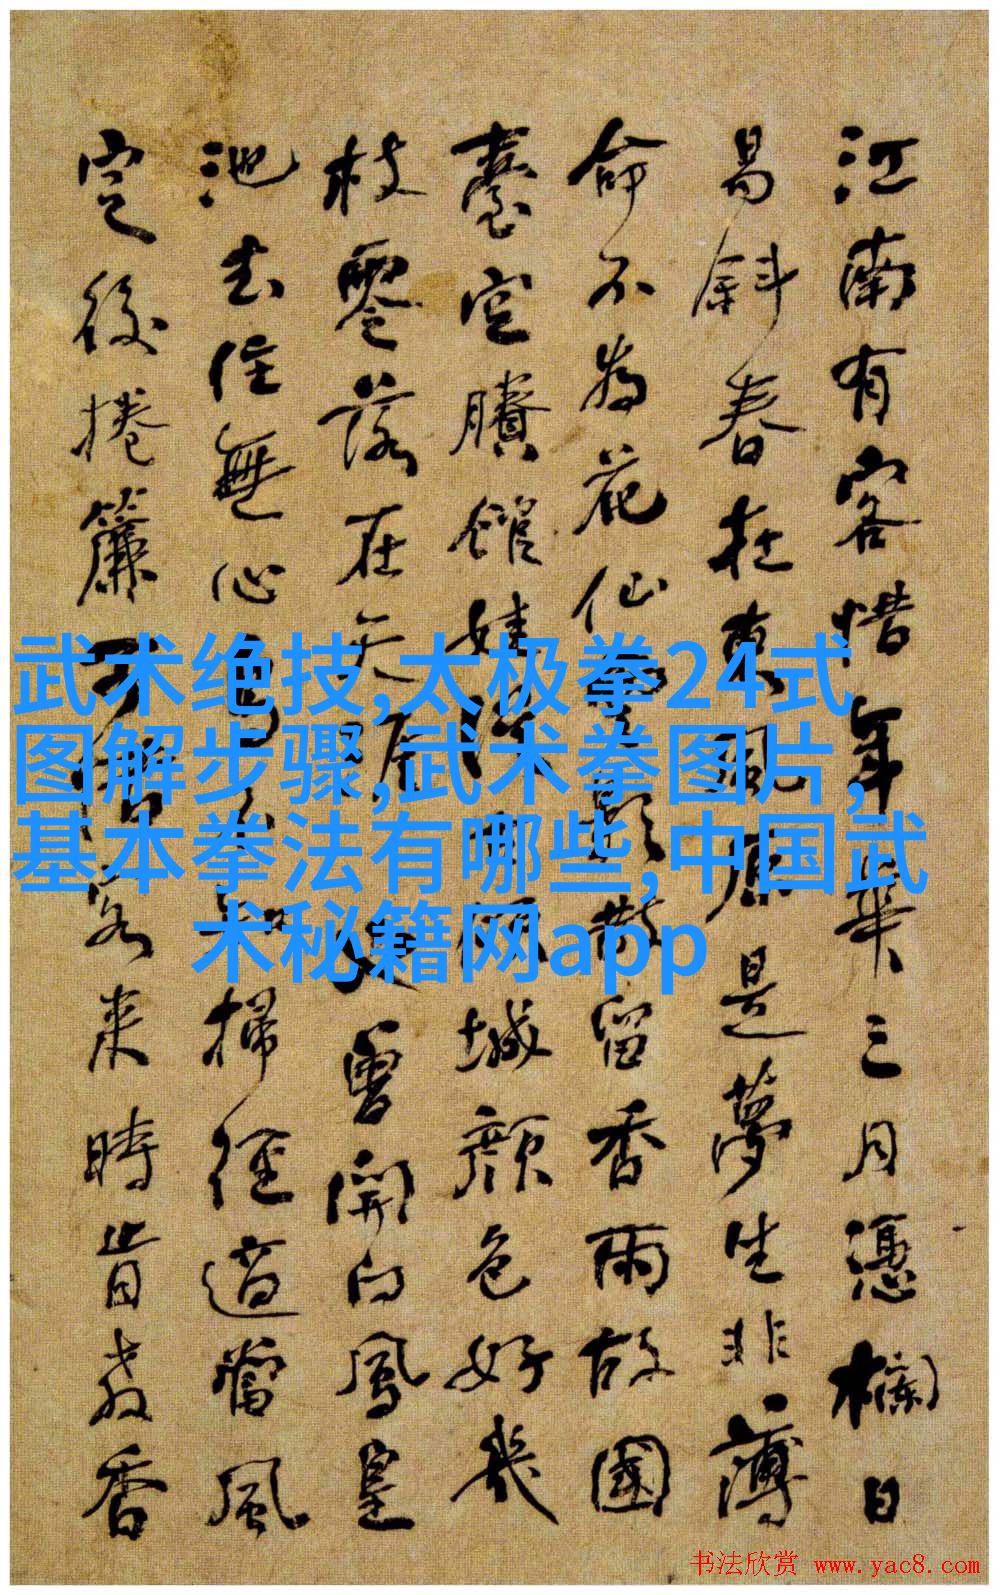 江南有客惜年華三月憑欄日
易斜春在東風原是夢生非薄
命不為花仙影散留香雨故國
臺空賸館娃城顏色好幾
枝零落在天曾開向鳳皇
池去住無心掃徑適當風
定後捲簾客來時肯教香
武术绝技,太极拳24式
图解步骤,武术拳图片,
基本拳法有哪些,中国武
术秘籍网app
书法欣赏 www.yac8.com